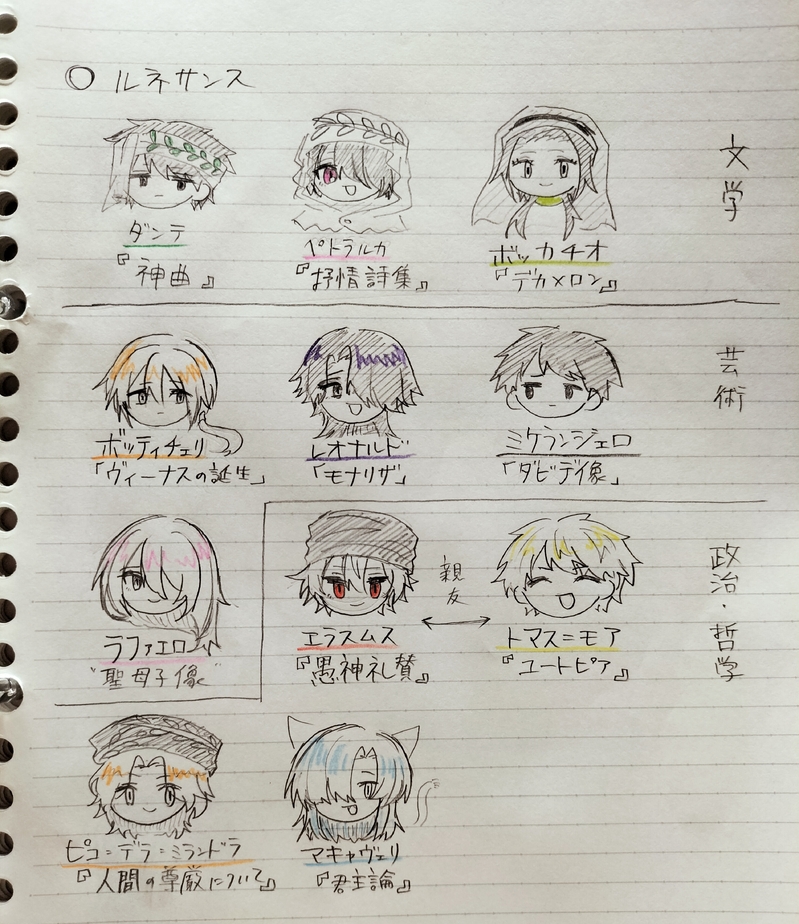 ○ ルネサンス
文学
ダンテ
『神曲』
ペトラルカ
『抒情詩集』
ボッカチオ
『デカメロン』
芸術
ボッティチェリ
「ヴィーナスの誕生」
レオナルド
「モナリザ」
ミケランジェロ
「ダビデ像」
ラファエロ
"聖母子像"
政治・哲学
エラスムス
『愚神礼賛』
親友
トマス=モア
『ユートピア』
ピコ=デラ=ミランドラ
『人間の尊厳について』
マキャヴェリ
『君主論』